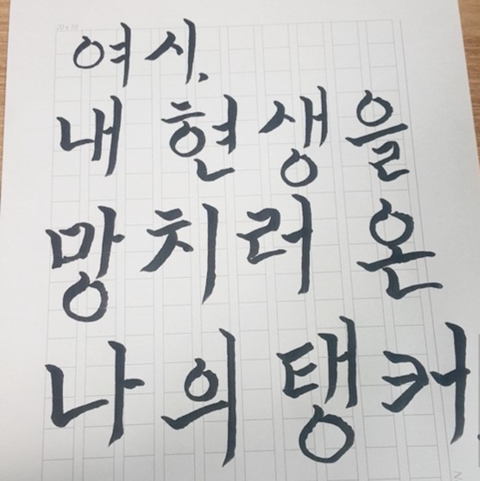 여시,
내 현생을
망치러 온
나의 탱커.